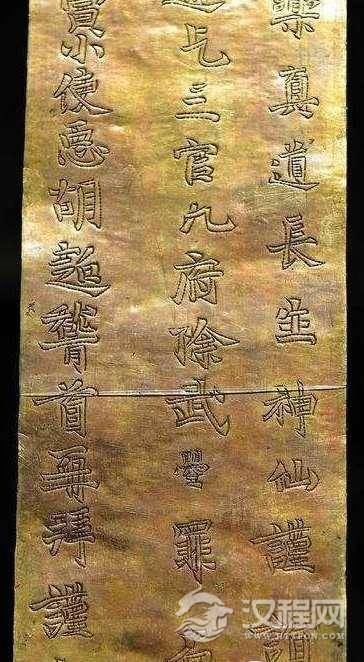 樂真道長生神仙謹詣
乞三官九府除武曌罪
寅小使𢘑胡超稽首再拜謹
汉程网
HTTPCN.COM